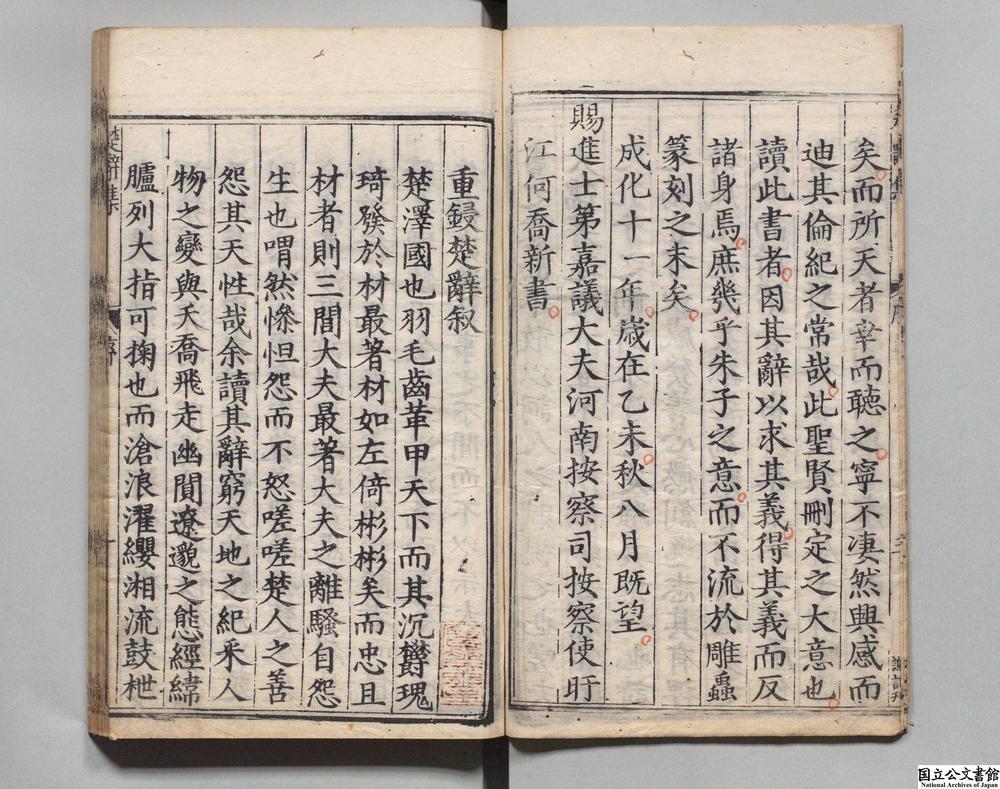 矣而所天者幸而聽之寧不凄然興感而
迪其倫紀之常哉此聖賢刪定之大意也
讀此書者因其辭以求其義得其義而反
諸身焉庶幾乎朱子之意而不流於雕蟲
篆刻之末矣
成化十一年歲在乙未秋八月既望
賜進士第嘉議大夫河南按察司按察使盱
江何喬新書
重鋟楚辭叙
楚澤國也羽毛齒革甲天下而其沉欝瑰
琦發於材最著材如左倚彬彬矣而忠且
材者則三閭大夫最著大夫之離騷自怨
生也喟然慘怛怨而不怒嗟嗟楚人之善
怨其天性哉余讀其辭窮天地之紀釆人
物之變與夭喬飛走幽閴遼邈之態經緯
臚列大指可掬也而滄浪濯纓湘流鼓枻
楚辭集
序
国立公文書館
National Archives of Japan